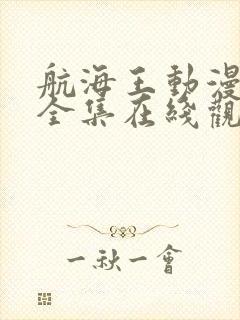 航海王動漫
全集在綫觀
一秋一會